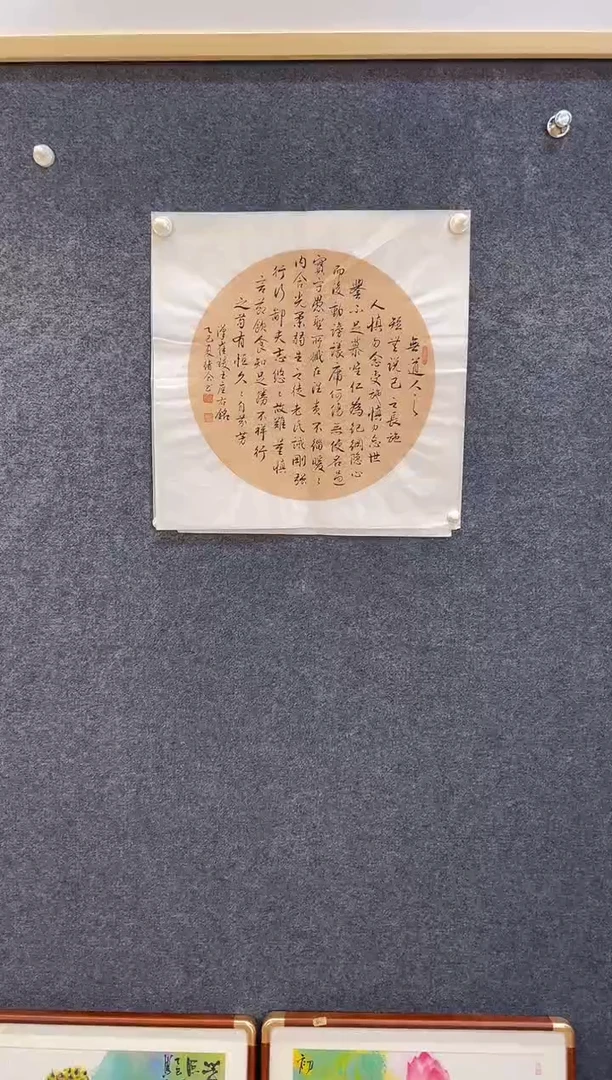 無道人之
短無說己之長施
人慎勿念受施慎勿忘世
譽不足慕唯仁為紀綱隱心
而後動謗議庸何傷無使名過
實守愚聖所臧在涅貴不緇曖〻
內含光柔弱生之徒老氏誡剛強
行行鄙夫志悠〻故難量慎
言節飲食知足勝不祥行
之苟有恒久〻自芬芳
漢崔瑗之座右銘
乙巳夏